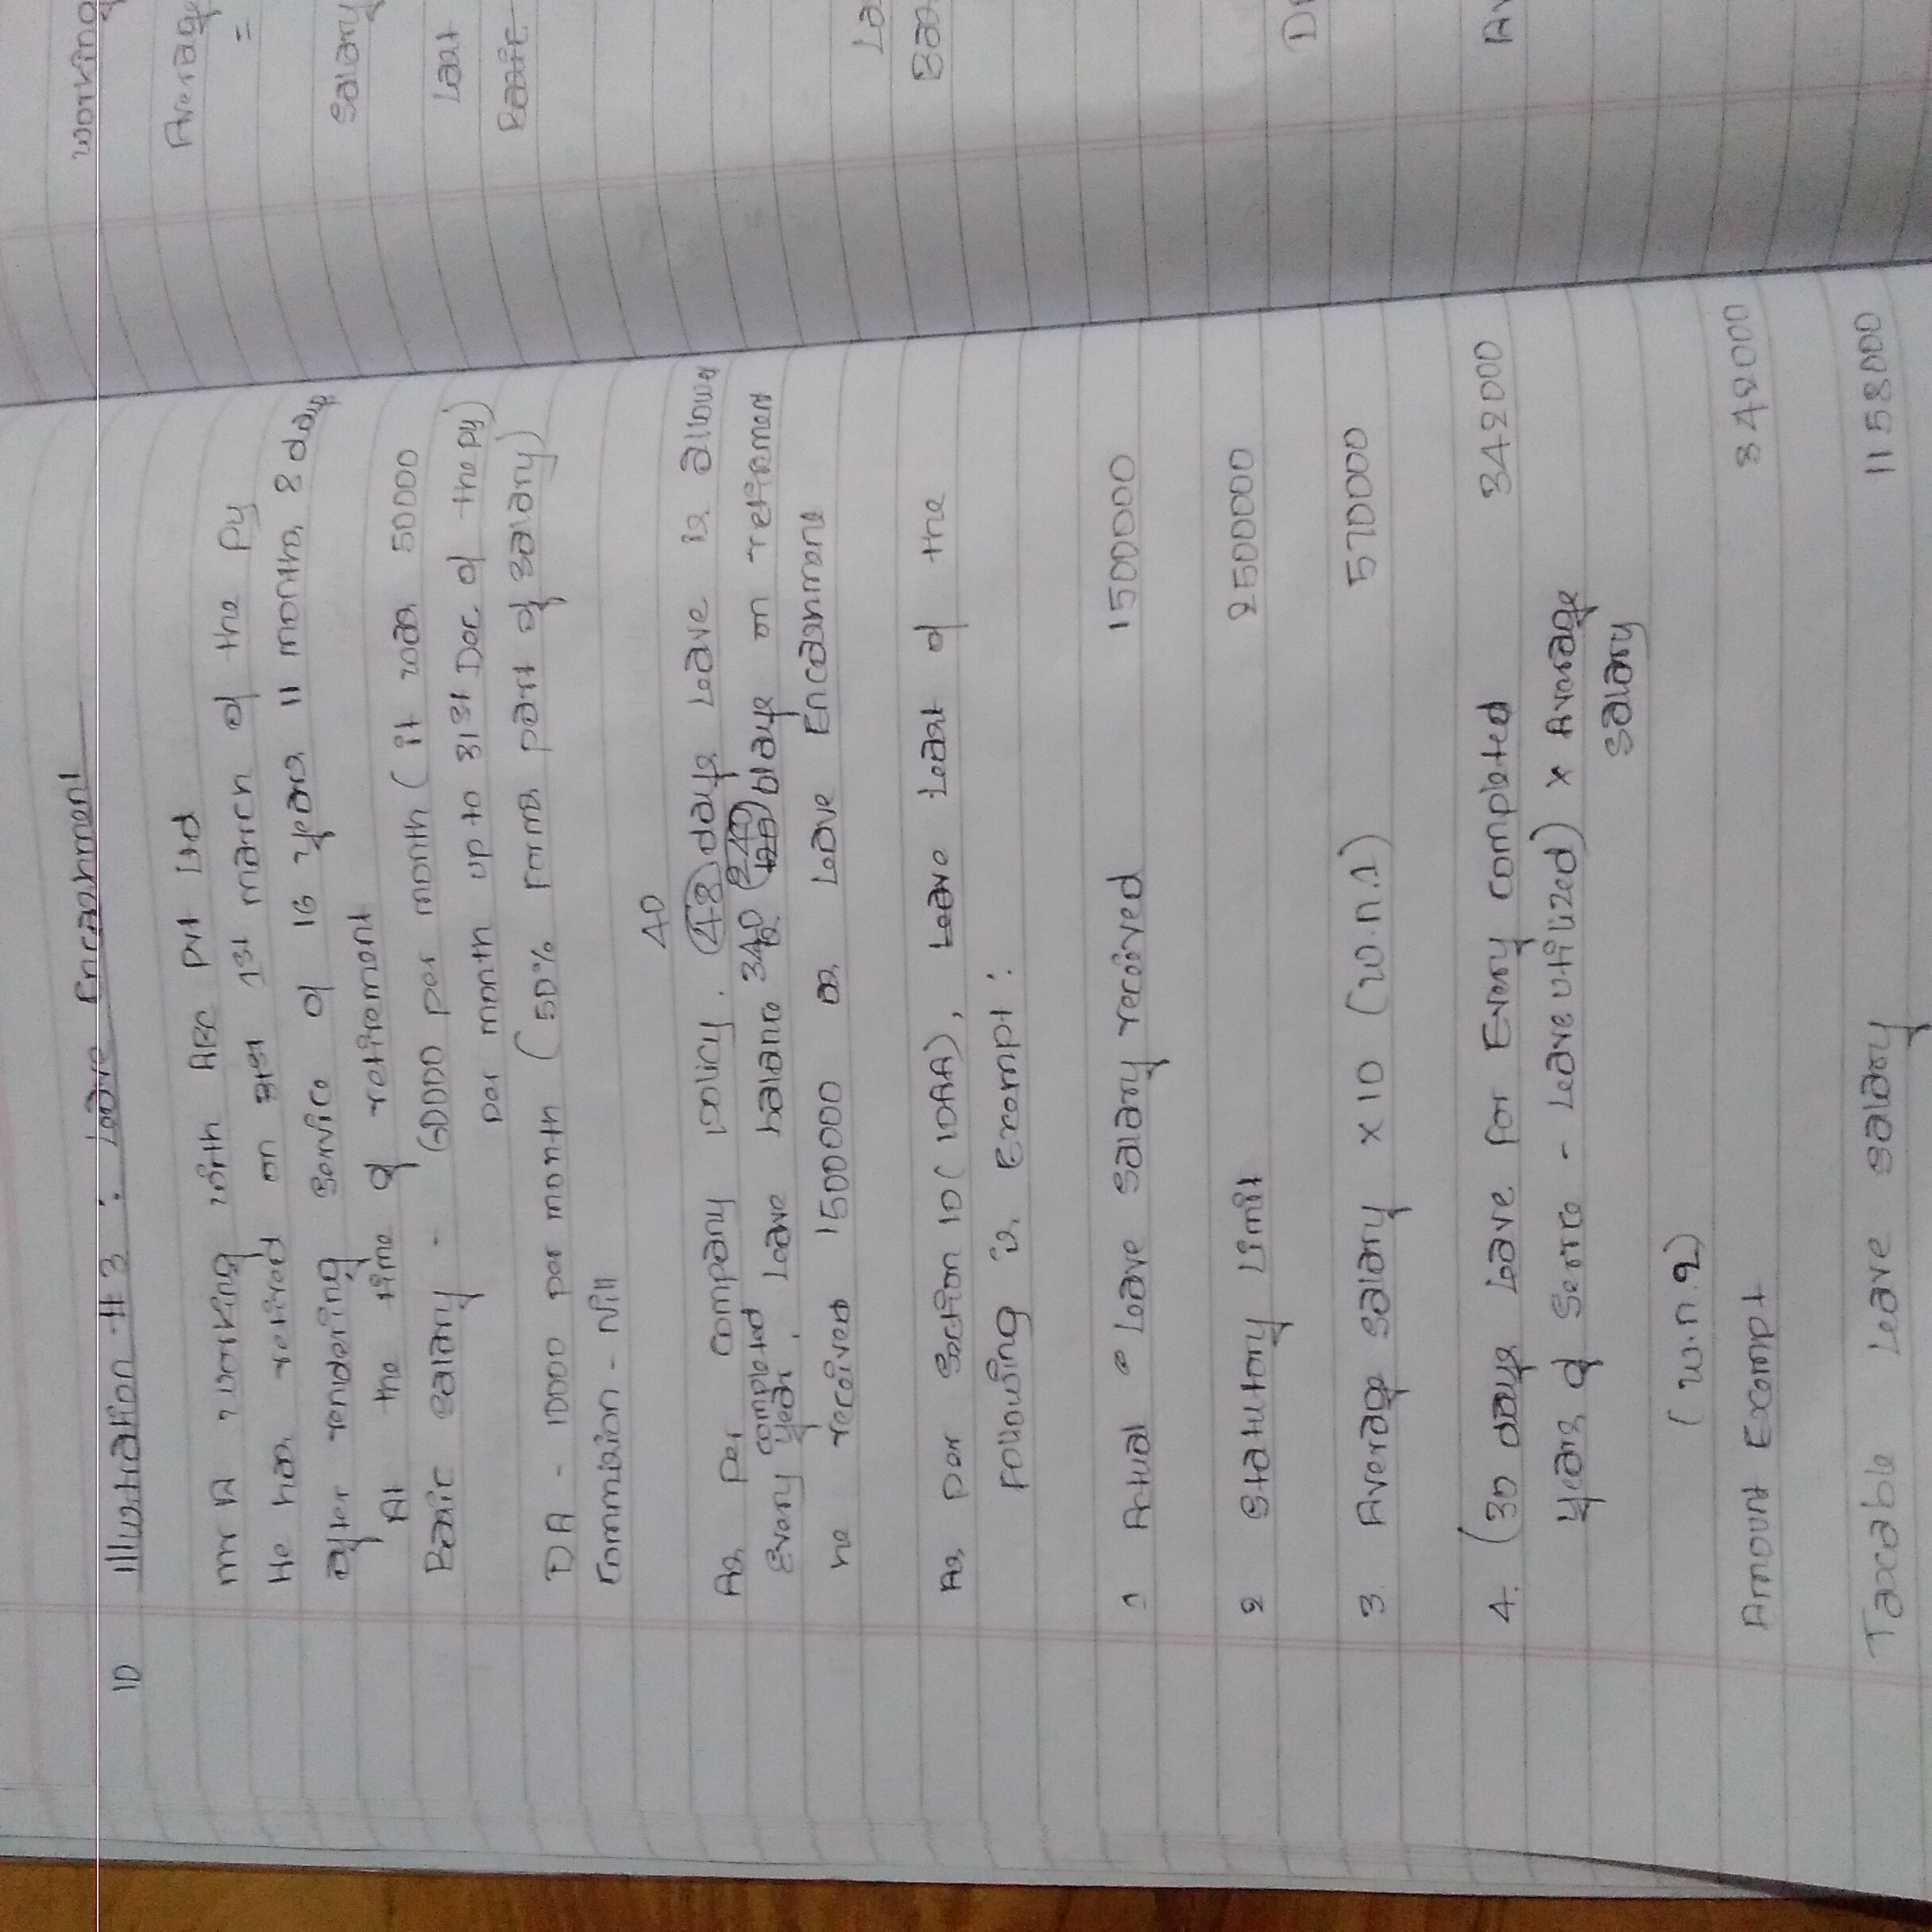 10 Illustration # 3 : Leave Encashment
mr A working with ABC pvt Ltd
He has retired on 1st march of the Py
after rendering service of 16 years 11 months 8 days
At the time of retirement
Basic salary - 60000 per month ( it was 50000
per month up to 31st Dec of the py)
DA - 10000 per month ( 50% forms part of salary)
Commission - Nill
40
As per company policy . 48 days leave is allowed
Every completed year . Leave balance 240 days on retirement
he received 1500000 as leave Encashment
As per section 10 ( 10AA ) , Leave Least of the
following is Exempt :
1 Actual Leave salary received 1500000
2 Statutory Limit 2500000
3. Average salary x 10 (w.n.1) 570000
4. (30 days Leave for Every completed 342000
years of Service - Leave utilized) x Average
salary
(w.n.2)
Amount Exempt 342000
Taxable Leave salary 1158000
working
Average
=
Salary
Last
Basic